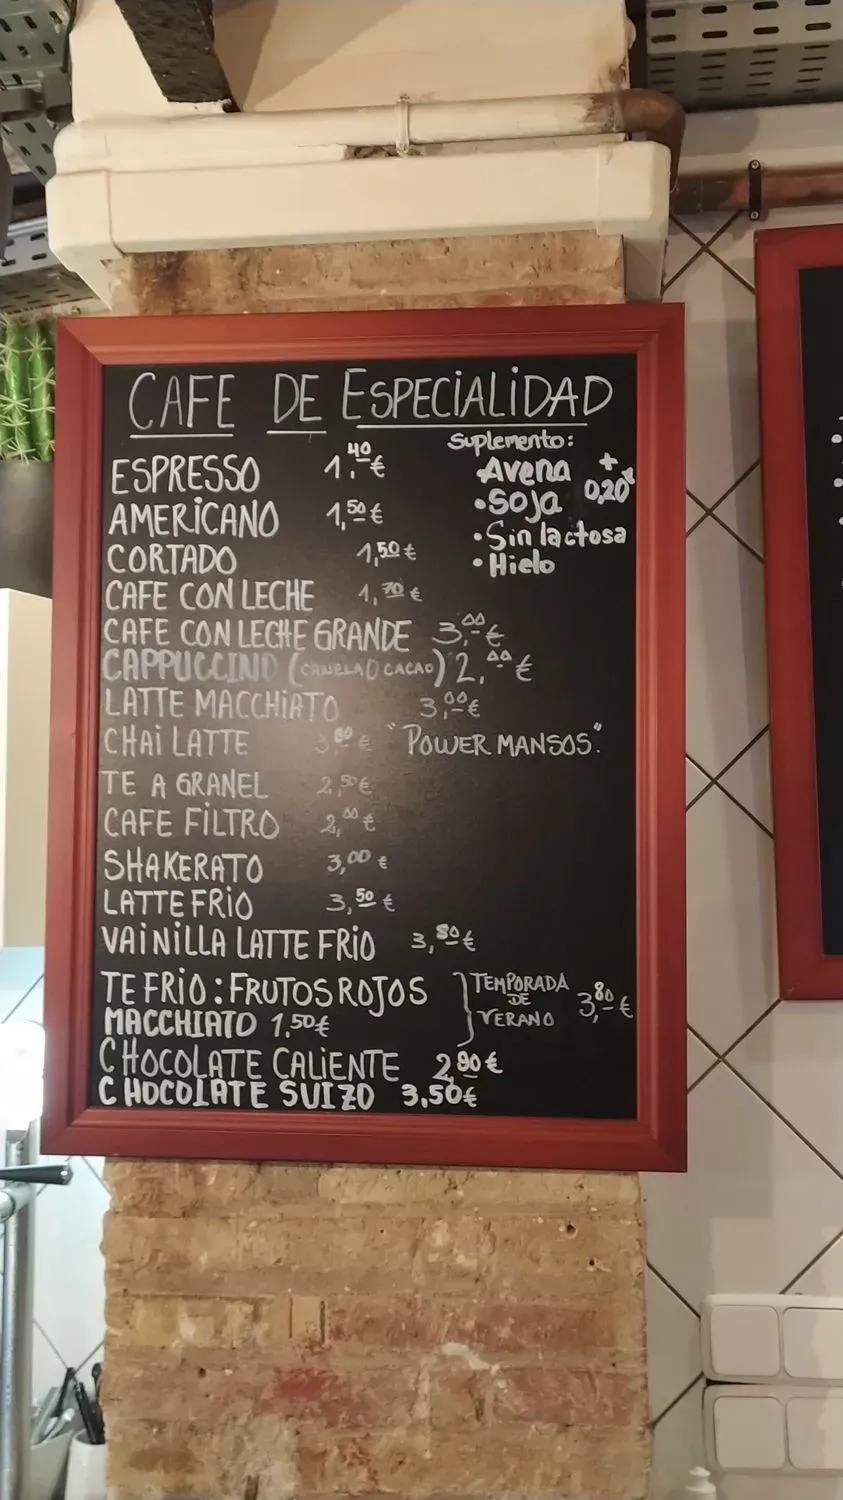 CAFE DE ESPECIALIDAD
Suplemento:
Avena +
• Soja 0,20
• Sin lactosa
• Hielo
ESPRESSO 1,40€
AMERICANO 1,50€
CORTADO 1,50€
CAFE CON LECHE 1,70€
CAFE CON LECHE GRANDE 3,00€
CAPPUCCINO (CANELA O CACAO) 2,00€
LATTE MACCHIATO 3,00€
CHAI LATTE 3,80€ "POWER MANSOS".
TE A GRANEL 2,50€
CAFE FILTRO 2,00€
SHAKERATO 3,00€
LATTE FRIO 3,50€
VAINILLA LATTE FRIO 3,80€
TE FRIO: FRUTOS ROJOS } TEMPORADA DE VERANO 3,80€
MACCHIATO 1,50€
CHOCOLATE CALIENTE 2,90€
CHOCOLATE SUIZO 3,50€